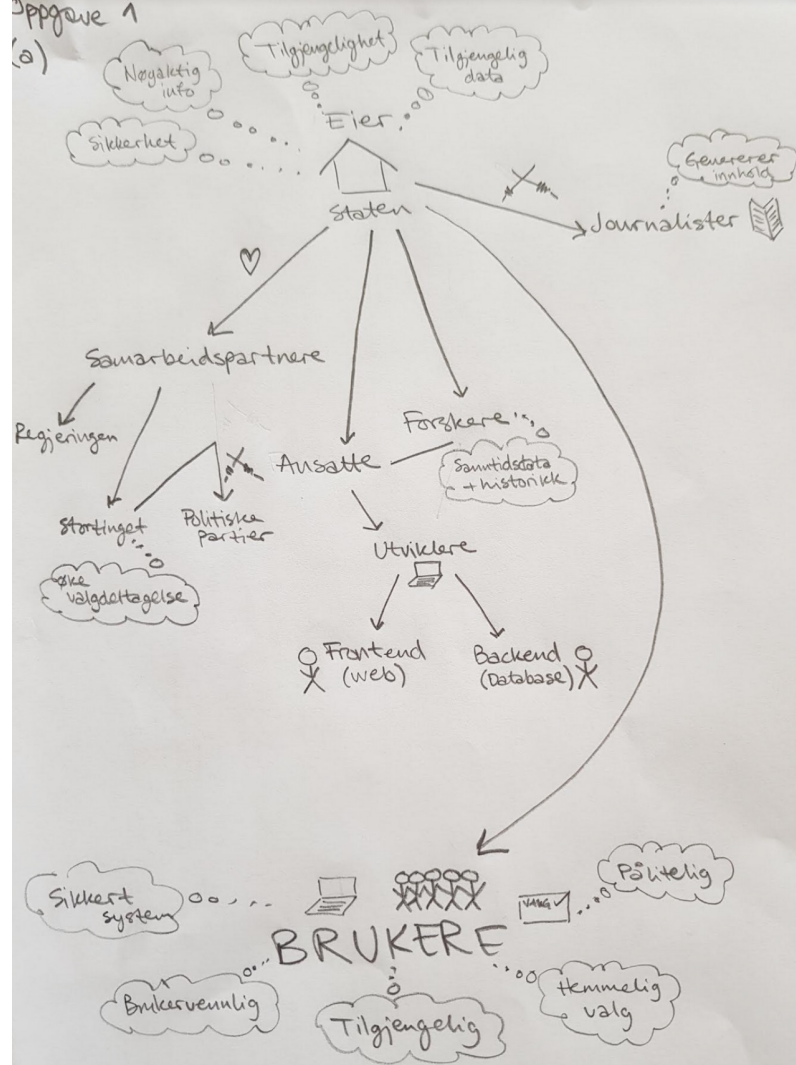 Oppgave 1
(a)
Tilgjengelighet
Tilgjengelig
data
Nøyaktig
info
Sikkerhet
Eier
Staten
Genererer
innhold
Journalister
Samarbeidspartnere
Regjeringen
Stortinget
Politiske
Partier
øke
valgdeltagelse
Ansatte
Forskere
Sanntidsdata
+ historikk
Utviklere
Frontend
(web)
Backend
(Database)
Sikkert
system
VALG ✓
Pålitelig
BRUKERE
Brukervennlig
Tilgjengelig
Hemmelig
valg